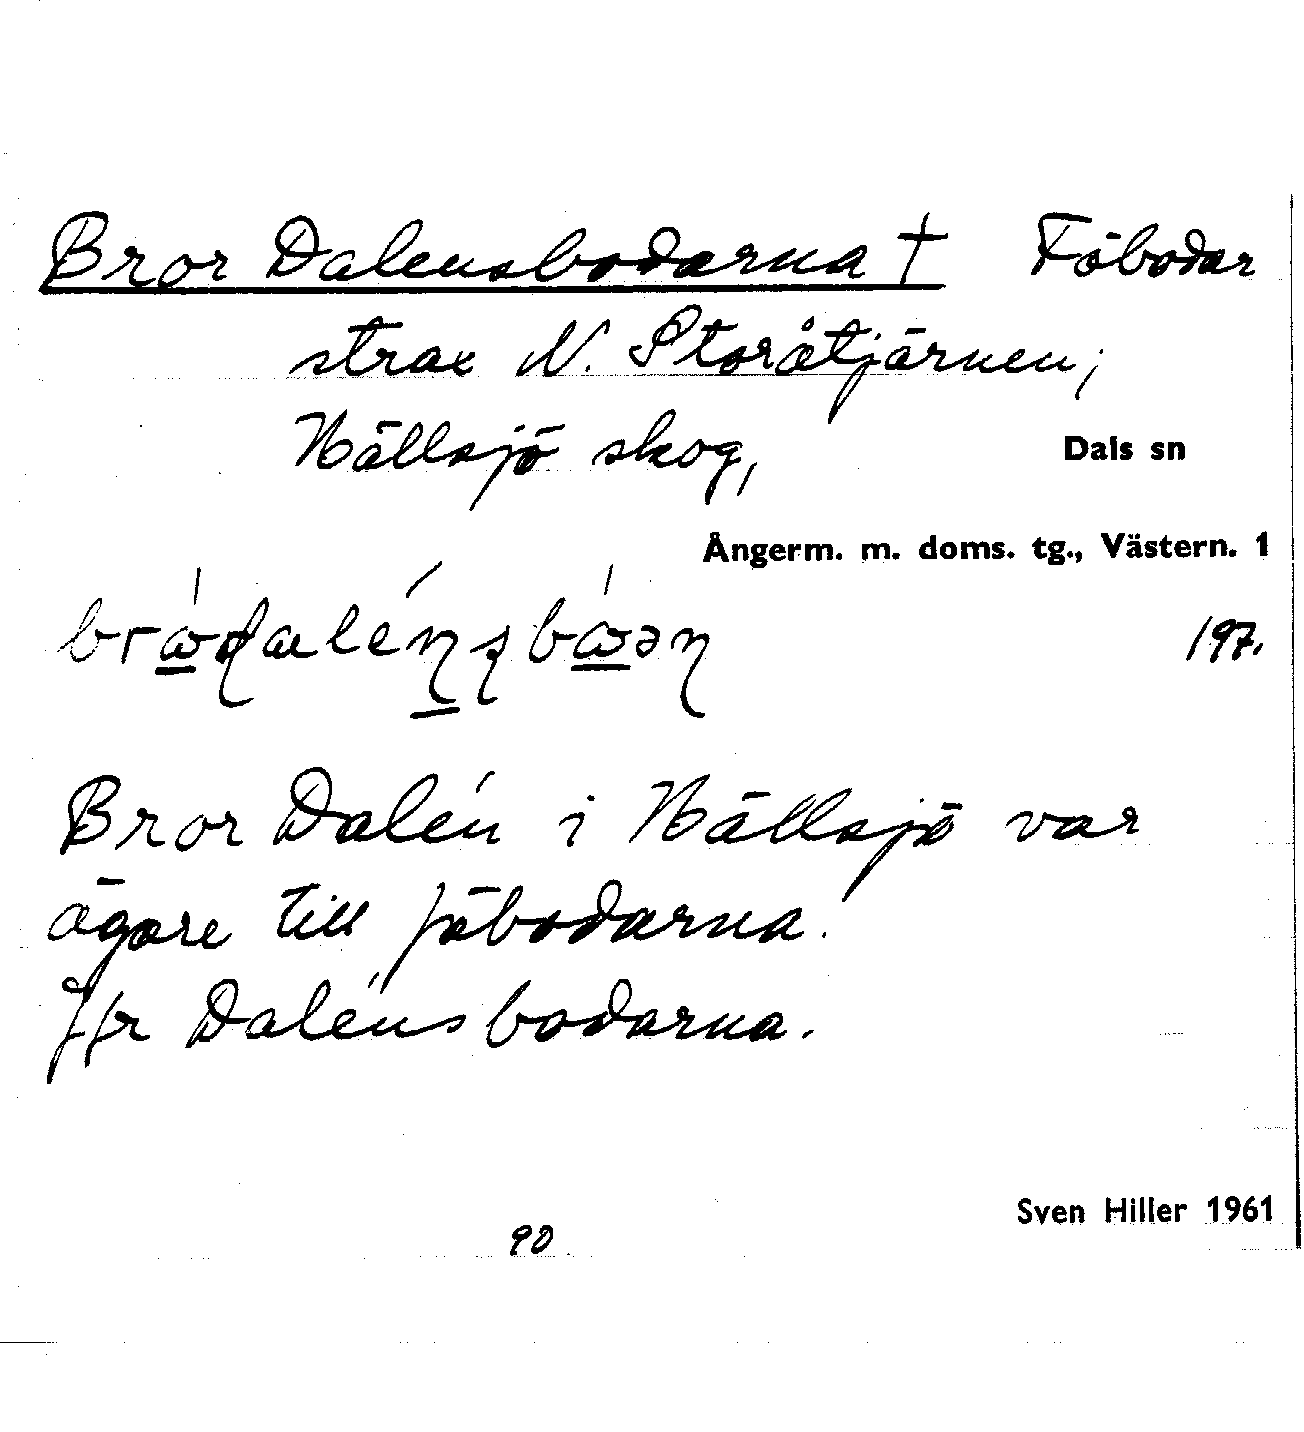 Bror Dalensbodarna † Fäbodar
strax N. Storåtjärnen;
Hällsjö skog,
Dals sn
Ångerm. m. doms. tg., Västern. 1
197.
Bror Dalén i Hällsjö var
ägare till fäbodarna.
Jfr Dalénsbodarna.
Sven Hiller 1961
90